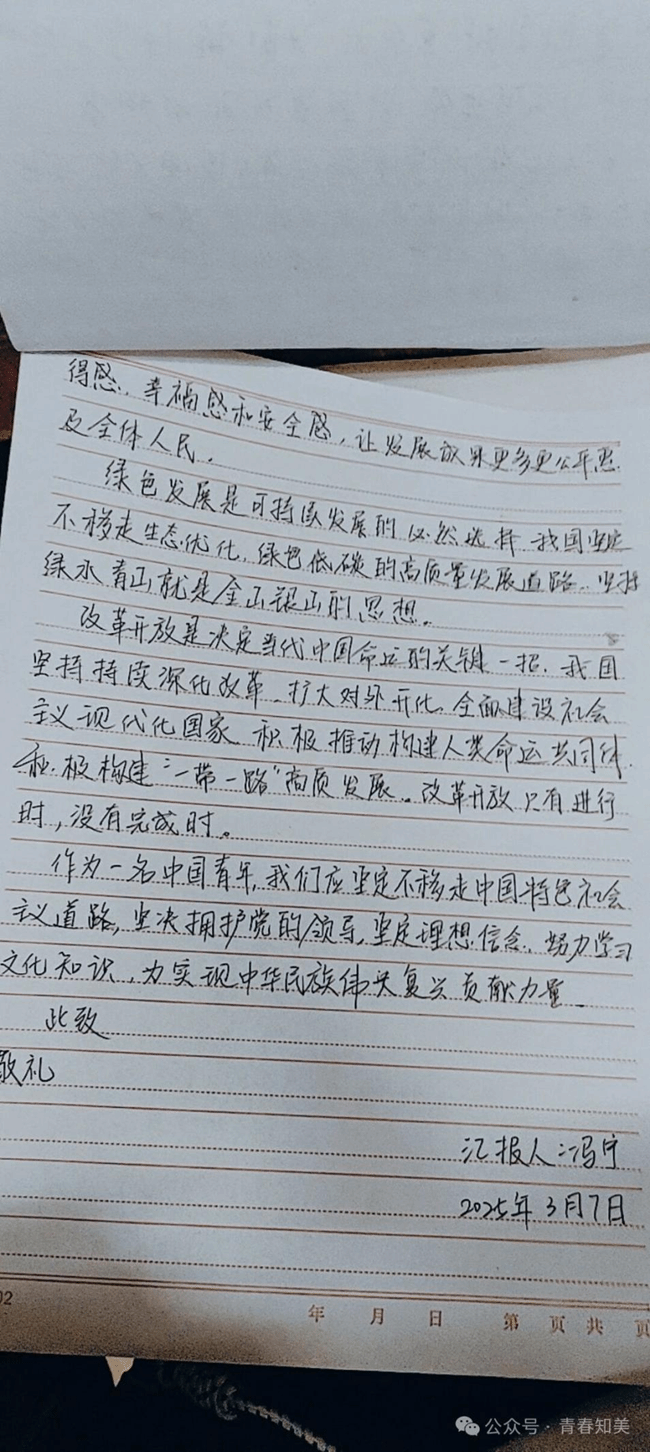 得感、幸福感和安全感，让发展成果更多更公平惠
及全体人民。
绿色发展是可持续发展的必然选择 我国坚定
不移走生态优化、绿色低碳的高质量发展道路、坚持
绿水青山就是金山银山的思想。
改革开放是决定当代中国命运的关键一招、我国
坚持持续深化改革、扩大对外开化、全面建设社会
主义现代化国家、积极推动构建人类命运共同体、
积极构建“一带一路”高质发展。改革开放只有进行
时，没有完成时。
作为一名中国青年，我们应坚定不移走中国特色社会
主义道路，坚决拥护党的领导，坚定理想信念、努力学习
文化知识，为实现中华民族伟大复兴贡献力量
此致
敬礼
汇报人：冯宁
2025年3月7日
02
年 月 日 第 页 共 页
公众号·青春知美